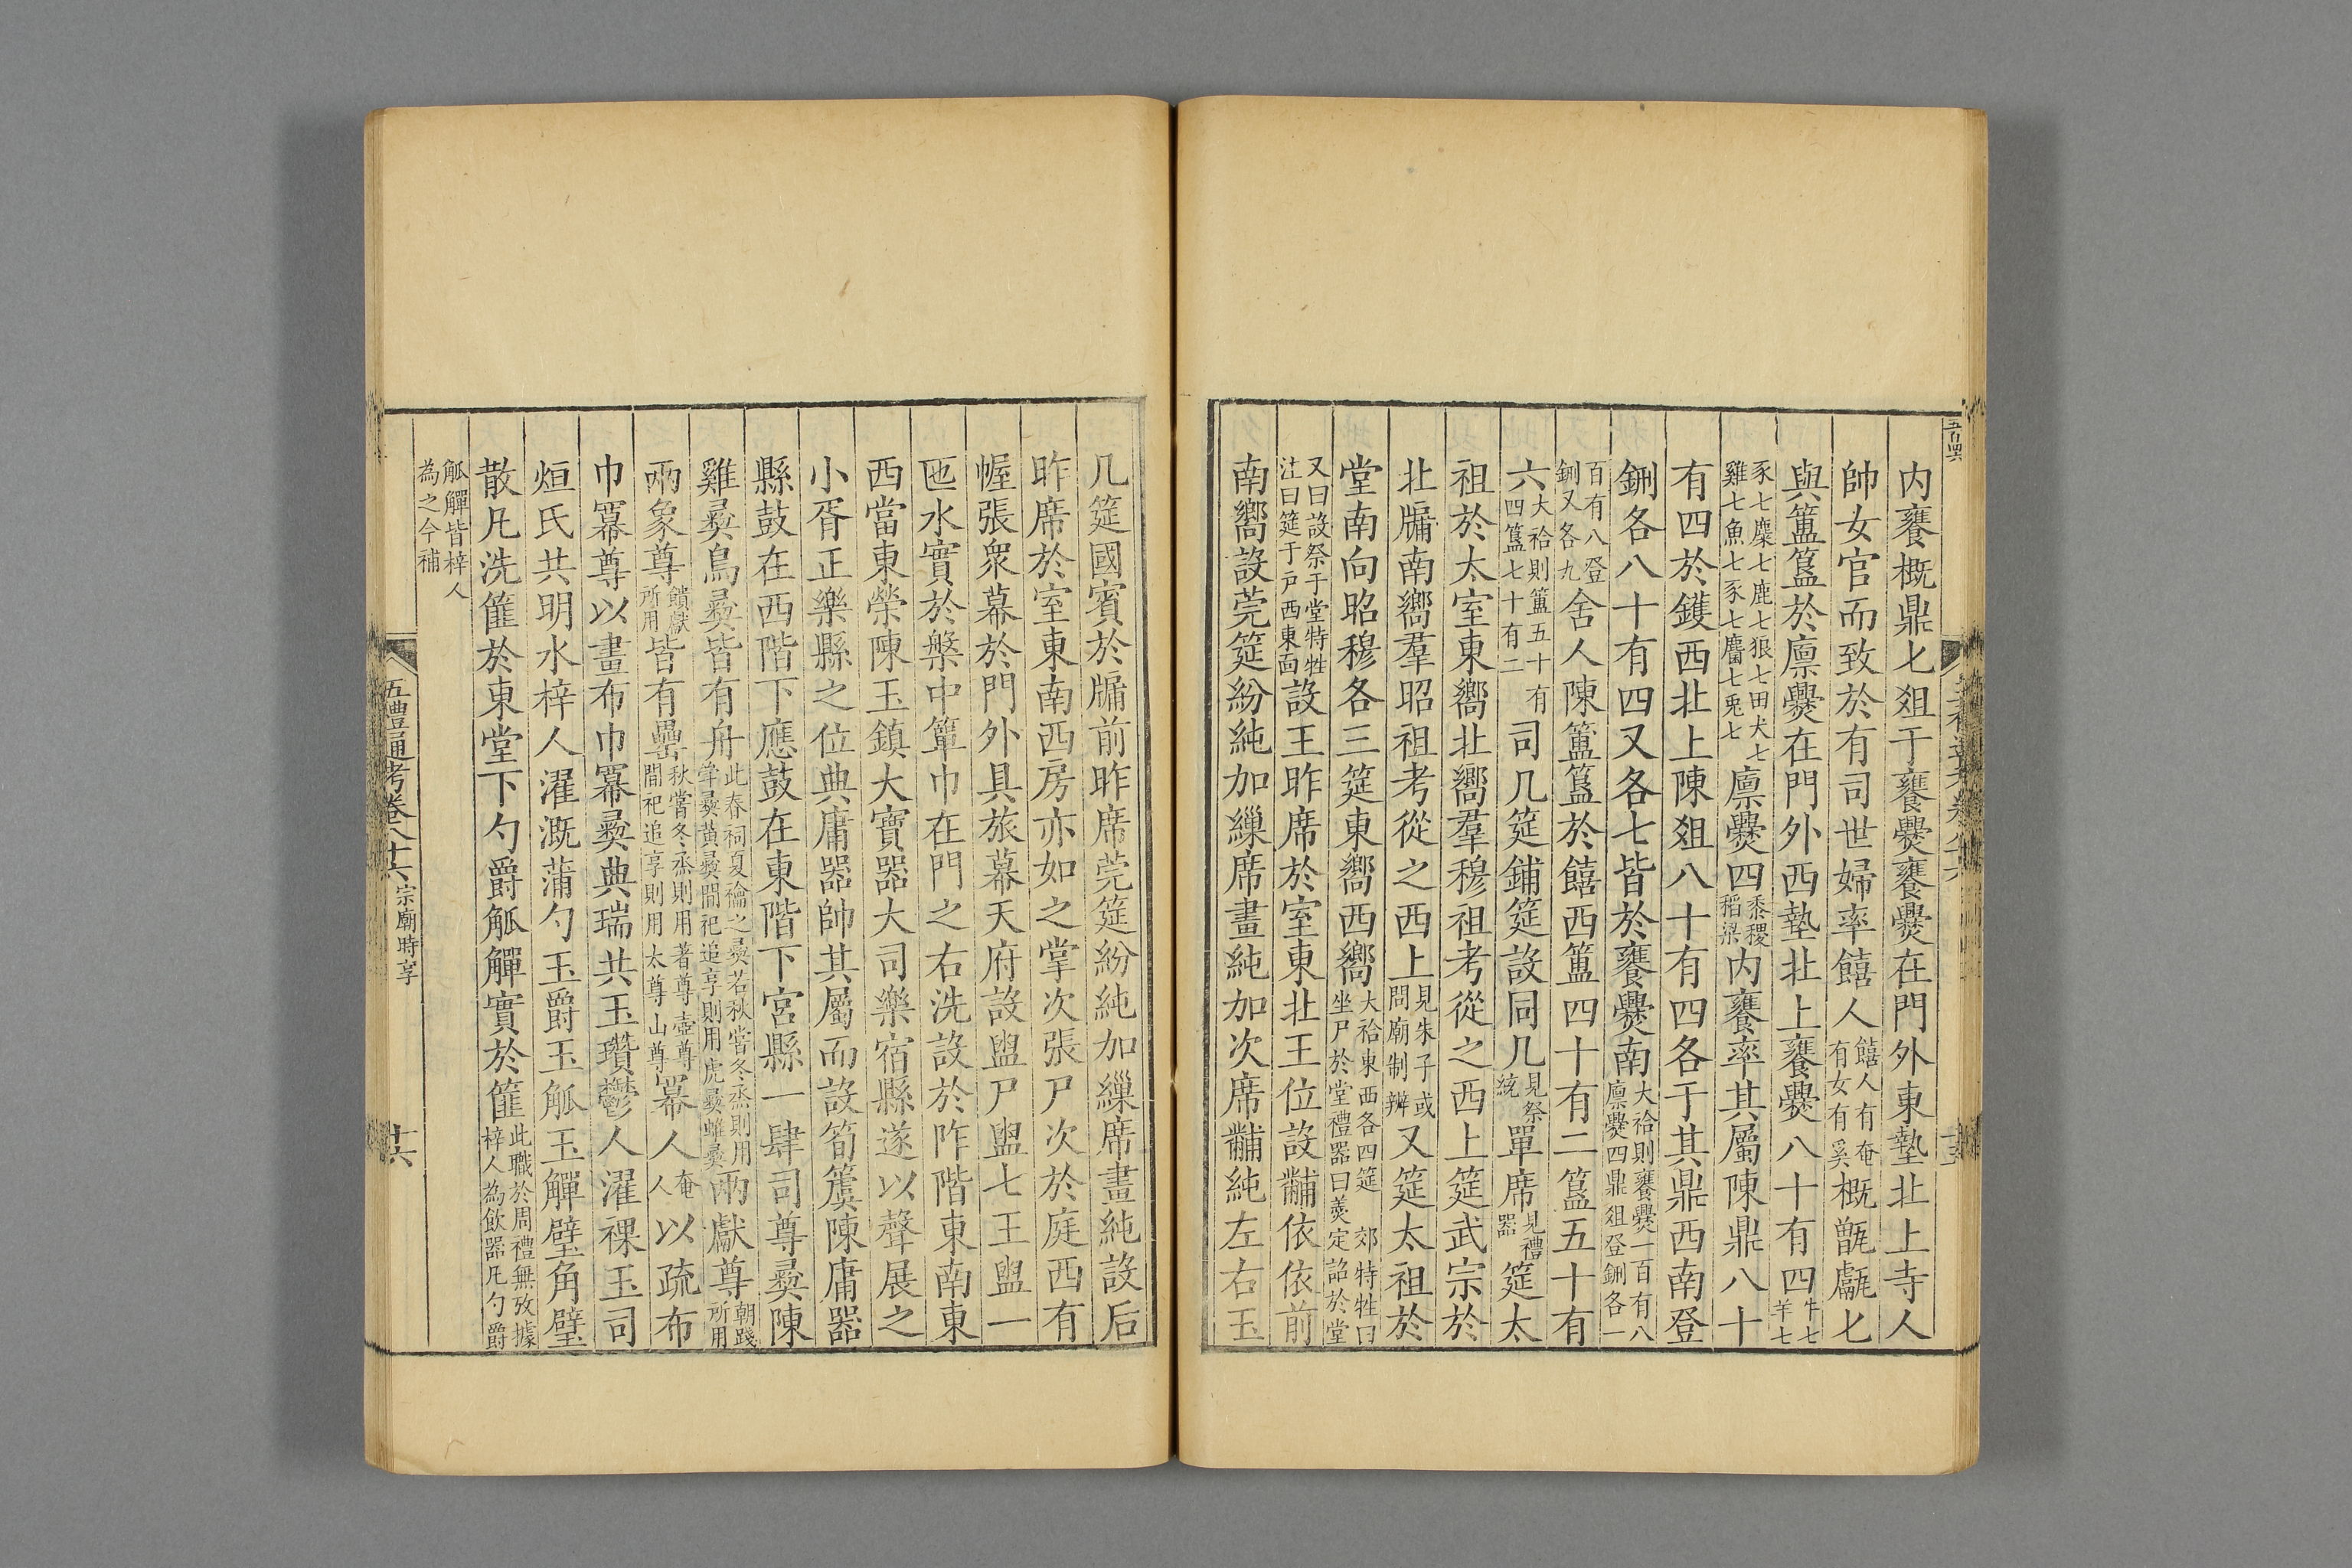 內饔概鼎匕俎于饔爨饔爨在門外東塾北上寺人
帥女官而致於有司世婦率饎人饎人有奄有女有奚概甑甗匕
與簠簋於廩爨在門外西塾北上饔爨八十有四牛七羊七
豕七麋七鹿七狼七田犬七雞七魚七豕七麕七兎七廩爨四黍稷稻粱內饔率其屬陳鼎八十
有四於鑊西北上陳俎八十有四各于其鼎西南登
鉶各八十有四又各七皆於饔爨南大祫則饔爨一百有八廩爨四鼎俎登鉶各一
百有八登鉶又各九舍人陳簠簋於饎西簠四十有二簋五十有
六大祫則簠五十有四簋七十有二司几筵鋪筵設同几見祭統單席見禮器筵太
祖於太室東嚮北嚮羣穆祖考從之西上筵武宗於
北牖南嚮羣昭祖考從之西上見朱子或問廟制辯又筵太祖於
堂南向昭穆各三筵東嚮西嚮大祫東西各四筵郊特牲曰坐尸於堂禮器曰羹定詔於堂
又曰設祭于堂特牲注曰筵于戶西東面設王昨席於室東北王位設黼依依前
南嚮設莞筵紛純加繅席畫純加次席黼純左右玉
几筵國賓於牖前昨席莞筵紛純加繅席畫純設后
昨席於室東南西房亦如之掌次張尸次於庭西有
幄張衆幕於門外具旅幕天府設盥尸盥七王盥一
匜水實於槃中簞巾在門之右洗設於阼階東南東
西當東榮陳玉鎮大寶器大司樂宿縣遂以聲展之
小胥正樂縣之位典庸器帥其屬而設筍簴陳庸器
縣鼓在西階下應鼓在東階下宮縣一肆司尊彝陳
雞彝鳥彝皆有舟此春祠夏禴之彝若秋嘗冬烝則用斝彝黃彝間祀追享則用虎彝蜼彝兩獻尊朝踐所用
兩象尊饋獻所用皆有罍秋嘗冬烝則用著尊壺尊間祀追享則用太尊山尊冪人奄人以疏布
巾冪尊以畫布巾冪彝典瑞共玉瓚鬱人濯祼玉司
烜氏共明水梓人濯溉蒲勺玉爵玉觚玉觶璧角璧
散凡洗篚於東堂下勺爵觚觶實於篚此職於周禮無攷據梓人為飲器凡勺爵
觚觶皆梓人為之今補
五禮通考卷八十六 宗廟時享 十六